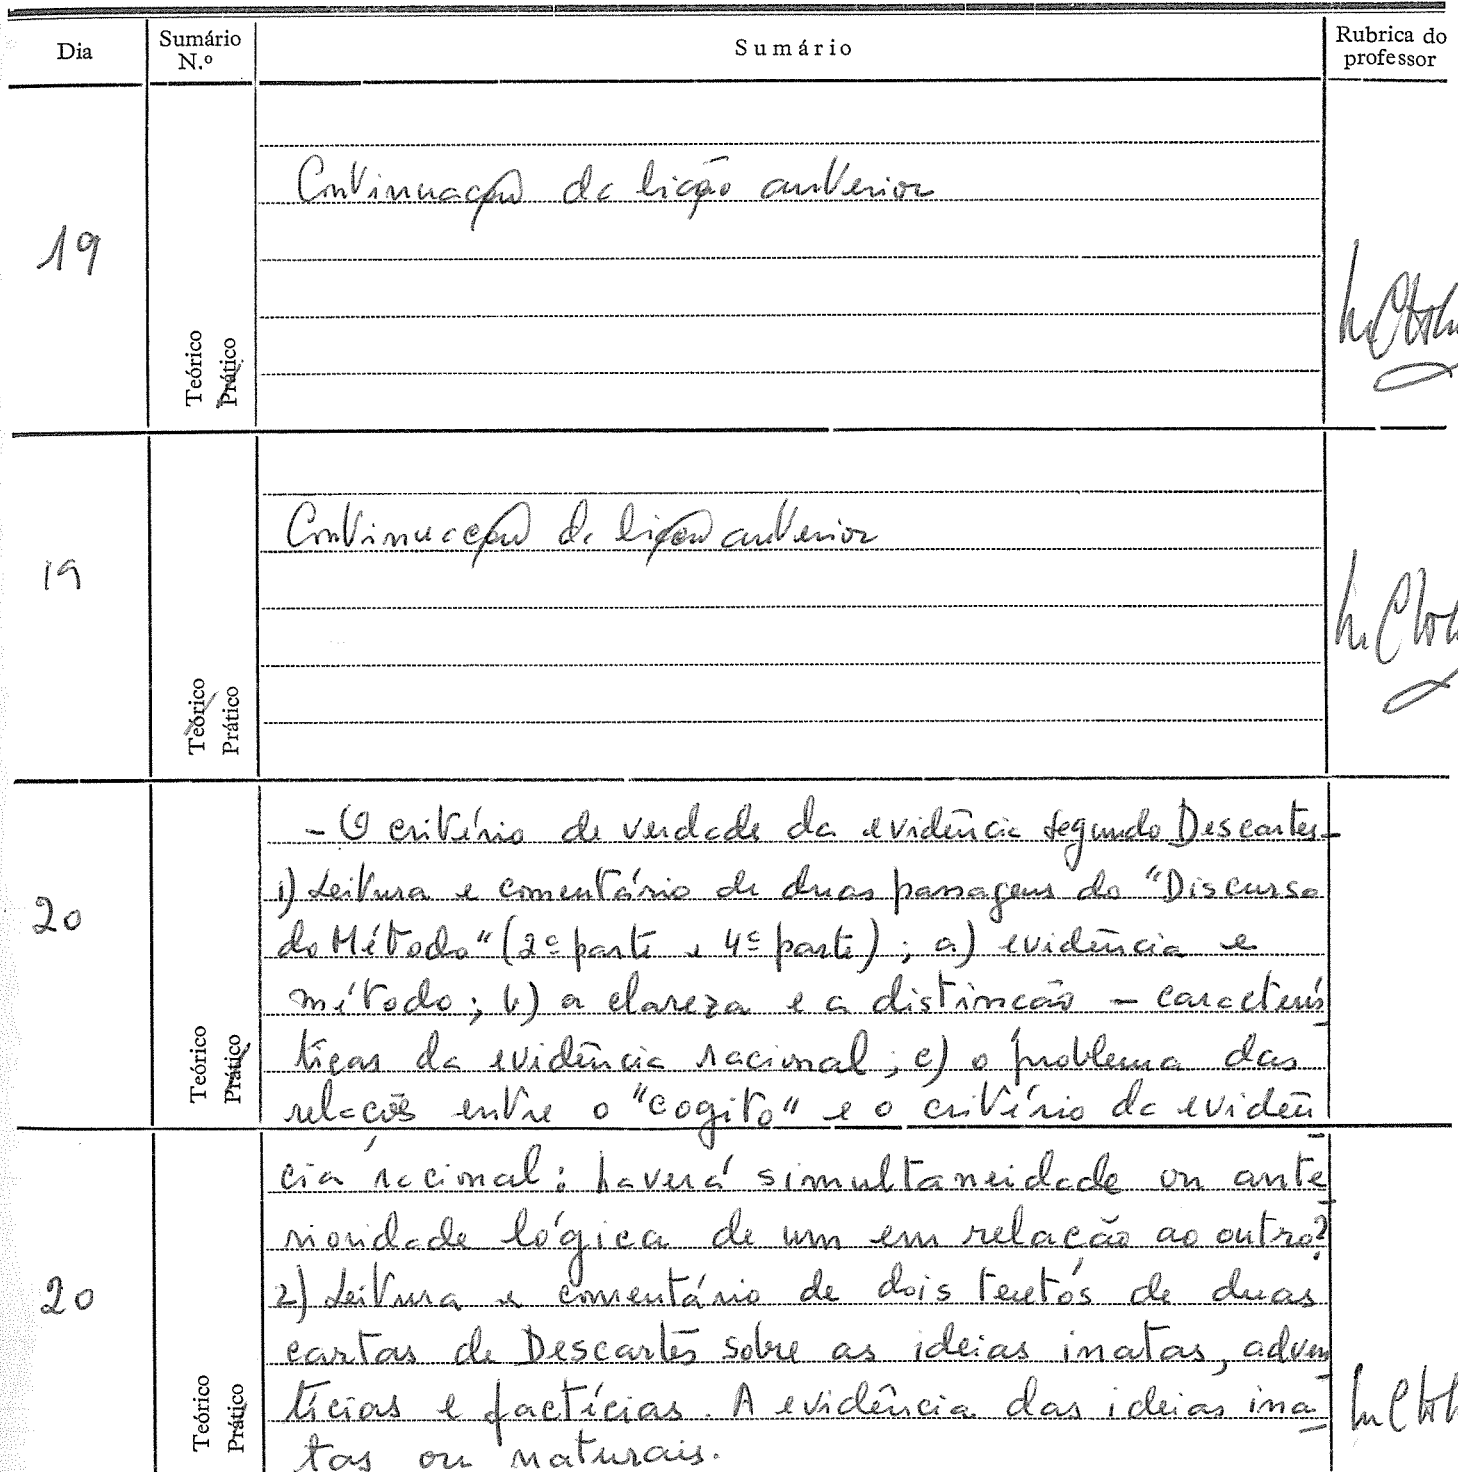 Dia
Sumário
N.º
Sumário
Rubrica do
professor
19
Continuação da lição anterior
Teórico
Prático
19
Continuação da lição anterior
Teórico
Prático
20
- O critério de verdade da evidência segundo Descartes -
1) Leitura e comentário de duas passagens do "Discurso
do Método" (2ª parte e 4ª parte); a) evidência e
método; b) a clareza e a distinção - caracterís
ticas da evidência racional; c) o problema das
relações entre o "cogito" e o critério da evidên
Teórico
Prático
20
cia racional: haverá simultaneidade ou ante
rioridade lógica de um em relação ao outro?
2) Leitura e comentário de dois textos de duas
cartas de Descartes sobre as ideias inatas, adven
tícias e factícias. A evidência das ideias ina
tas ou naturais.
Teórico
Prático